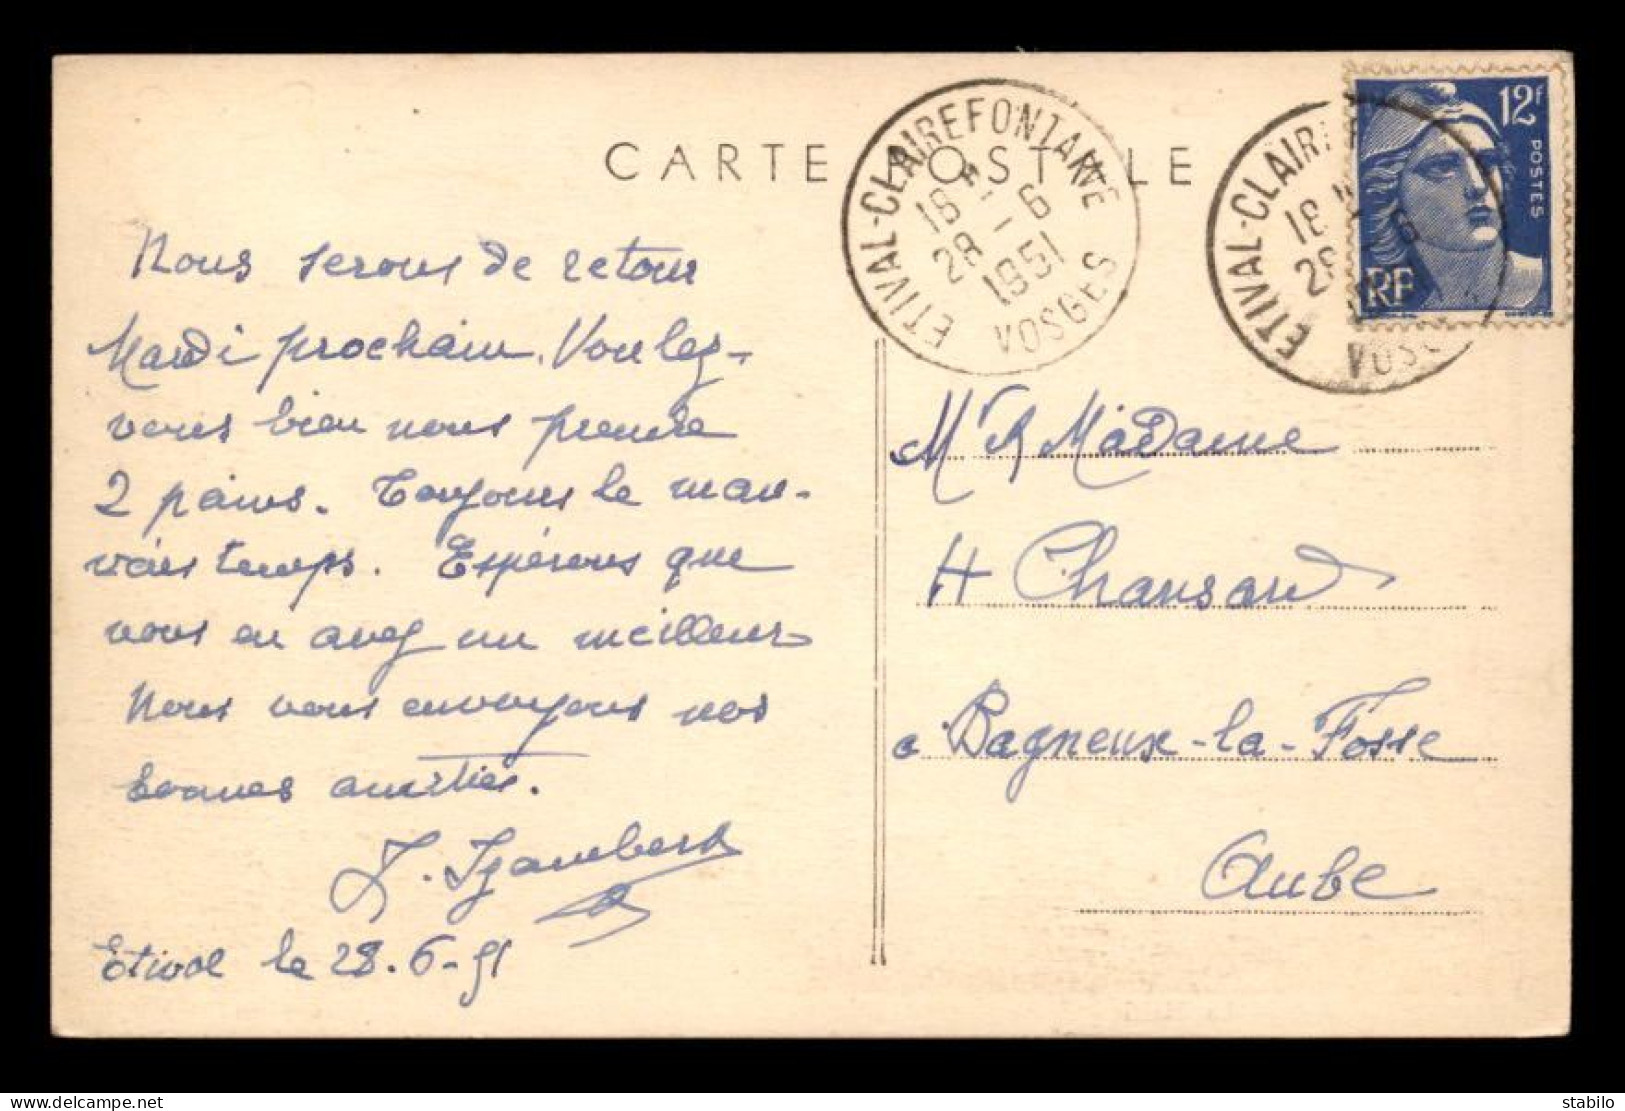 CARTE POSTALE
ETIVAL-CLAIREFONTAINE
18 H
28 - 6
1951
VOSGES
ETIVAL-CLAIREF
18 H
28 - 6
VOSG
12F
POSTES
RF
Nous serons de retour
Mardi prochain. Voulez-
vous bien nous prendre
2 pains. Toujours le mau-
vais temps. Espérons que
vous en avez un meilleur
Nous vous envoyons nos
bonnes amitiés.
Etival le 28.6-51
Mr & Madame
H Chansard
à Bagneux-la-Fosse
Aube
www.delcampe.net
stabilo